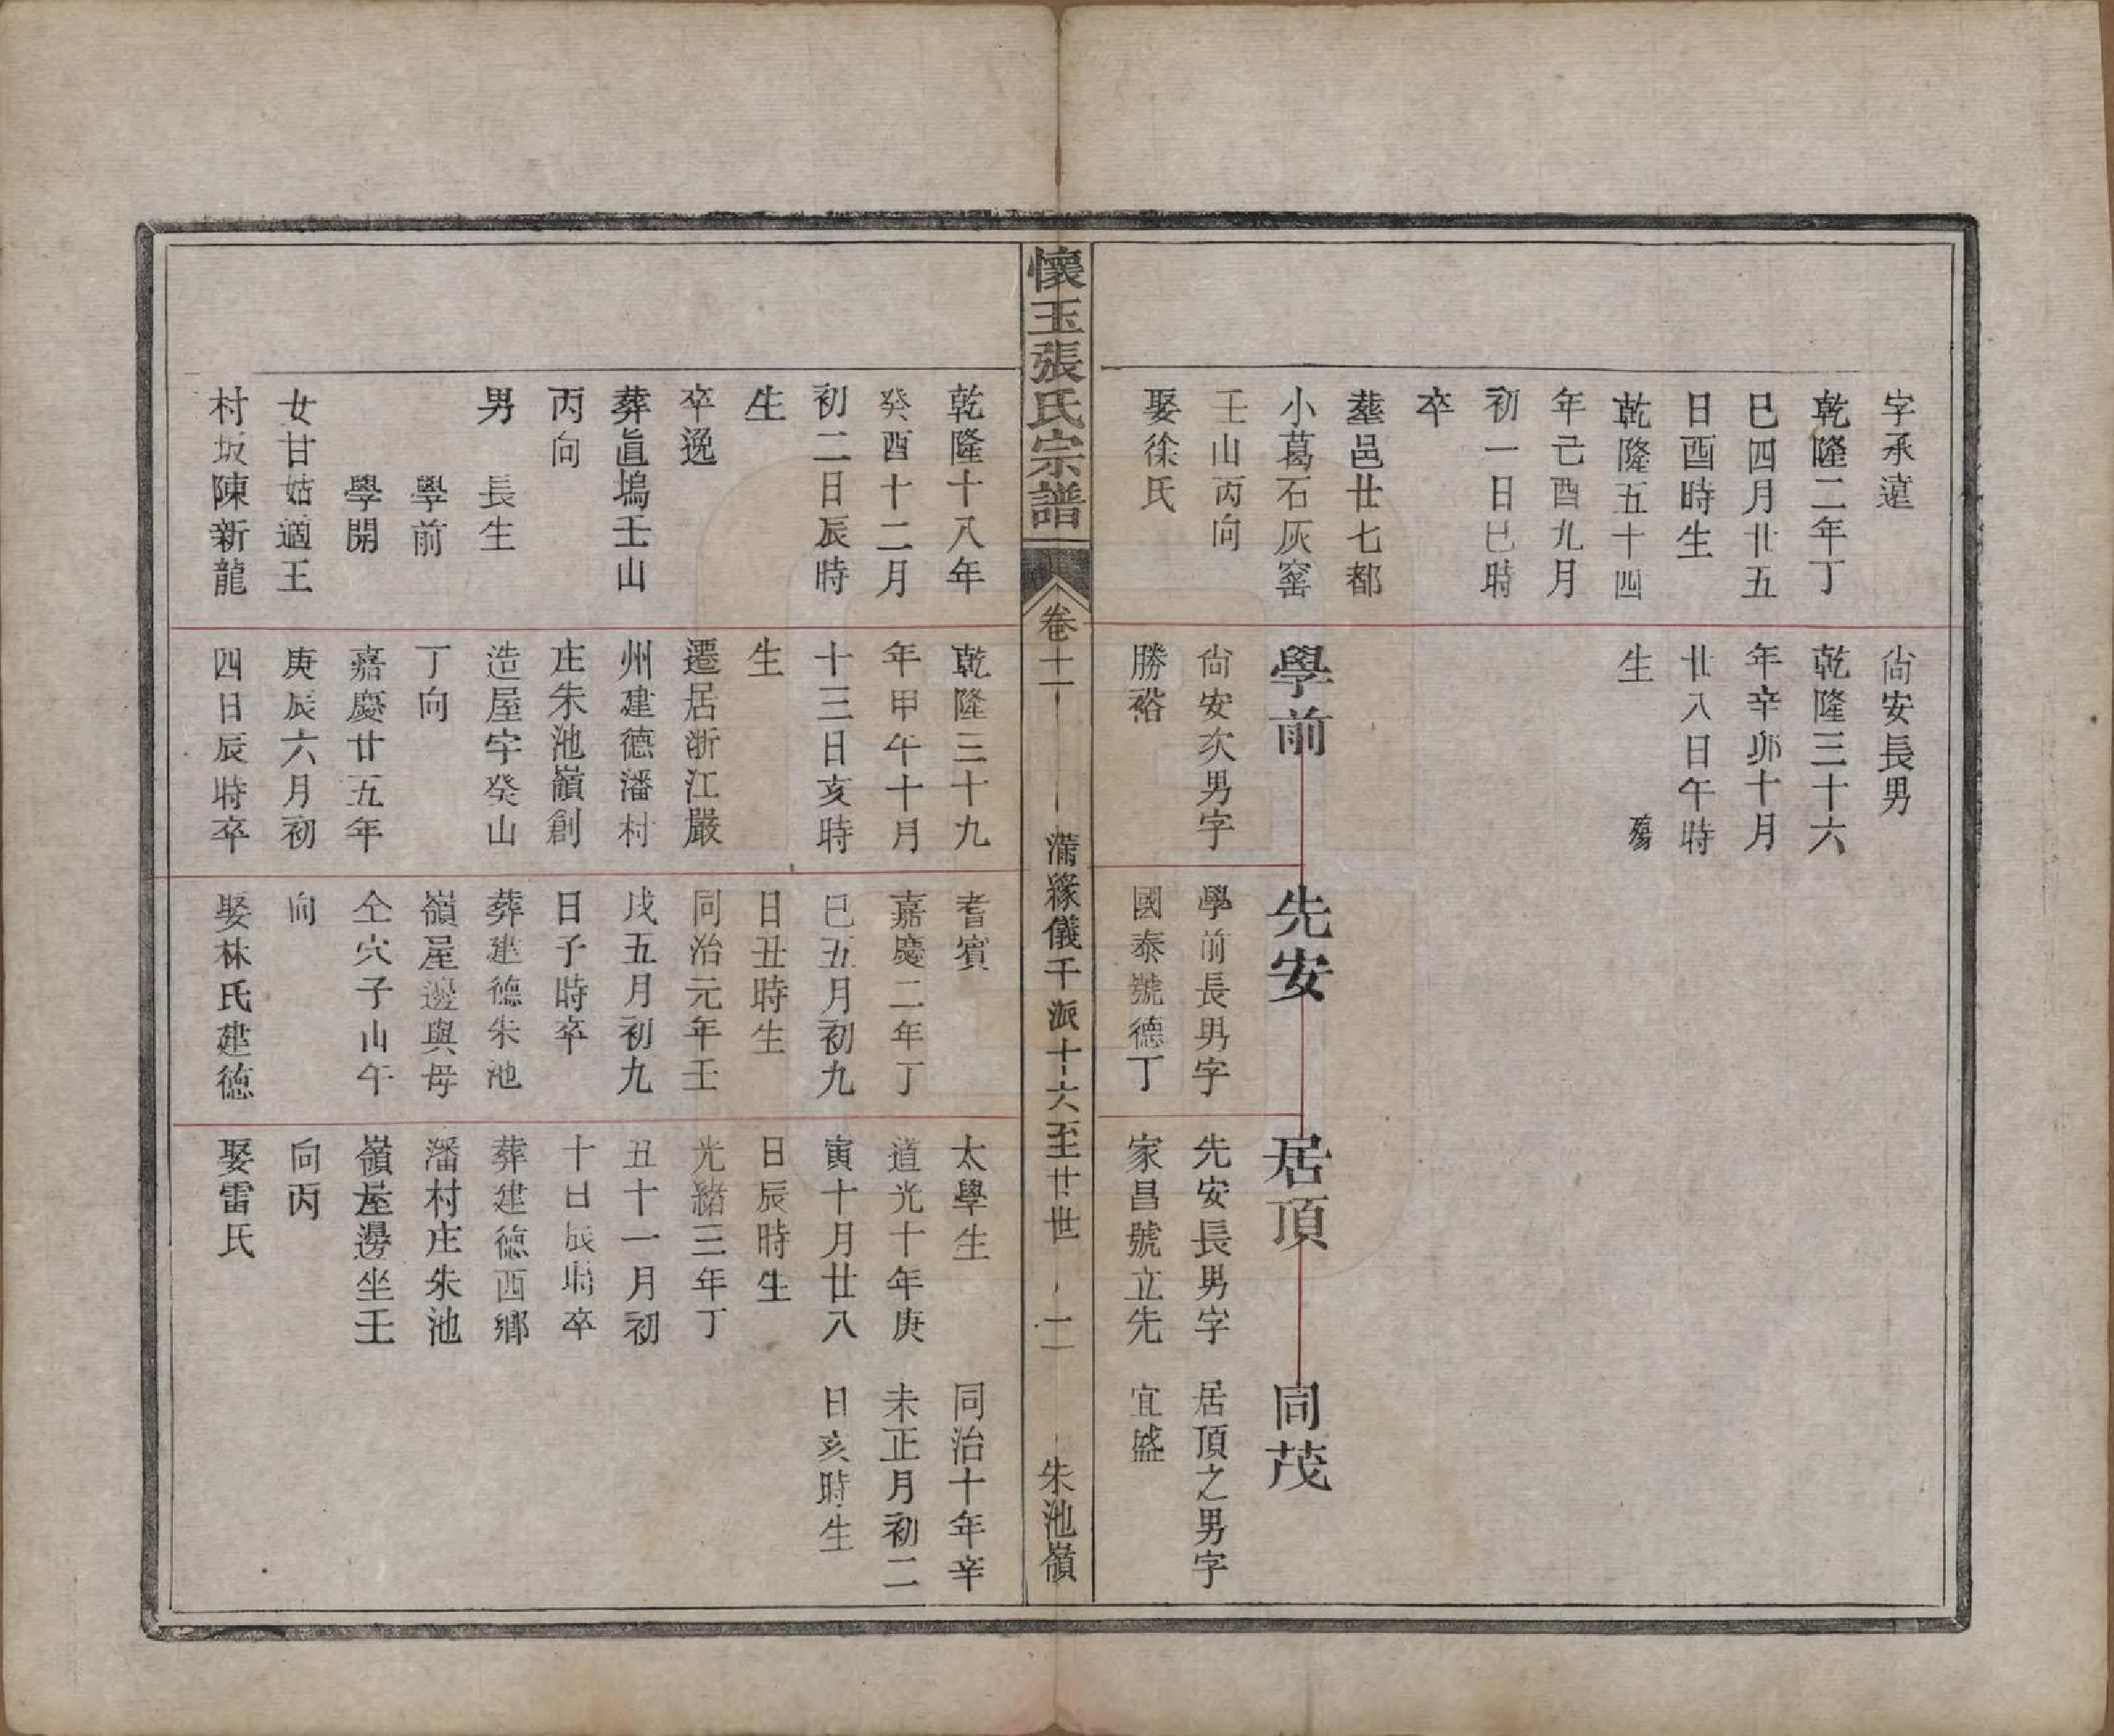 字承遠
乾隆二年丁
巳四月廿五
日酉時生
乾隆五十四
年己酉九月
初一日巳時
卒
塟邑廿七都
小葛石灰窰
壬山丙向
娶徐氏
尙安長男
乾隆三十六
年辛卯十月
廿八日午時
生 殤
學前
尙安次男字
勝裕
先安
學前長男字
國泰號德丁
居頂
先安長男字
家昌號立先
同茂
居頂之男字
宜盛
懷玉張氏宗譜
卷十一
滿緣儀千派十六至廿世
二
朱池嶺
乾隆十八年
癸酉十二月
初二日辰時
生
卒逸
葬眞塢壬山
丙向
男 長生
學前
學開
女甘姑適王
村坂陳新龍
乾隆三十九
年甲午十月
十三日亥時
生
遷居浙江嚴
州建德潘村
庄朱池嶺創
造屋宇癸山
丁向
嘉慶廿五年
庚辰六月初
四日辰時卒
耆賓
嘉慶二年丁
巳五月初九
日丑時生
同治元年壬
戌五月初九
日子時卒
葬建德朱池
嶺屋邊與母
仝穴子山午
向
娶林氏建德
太學生
道光十年庚
寅十月廿八
日辰時生
光緒三年丁
丑十一月初
十日辰時卒
葬建德西鄉
潘村庄朱池
嶺屋邊坐壬
向丙
娶雷氏
同治十年辛
未正月初二
日亥時生